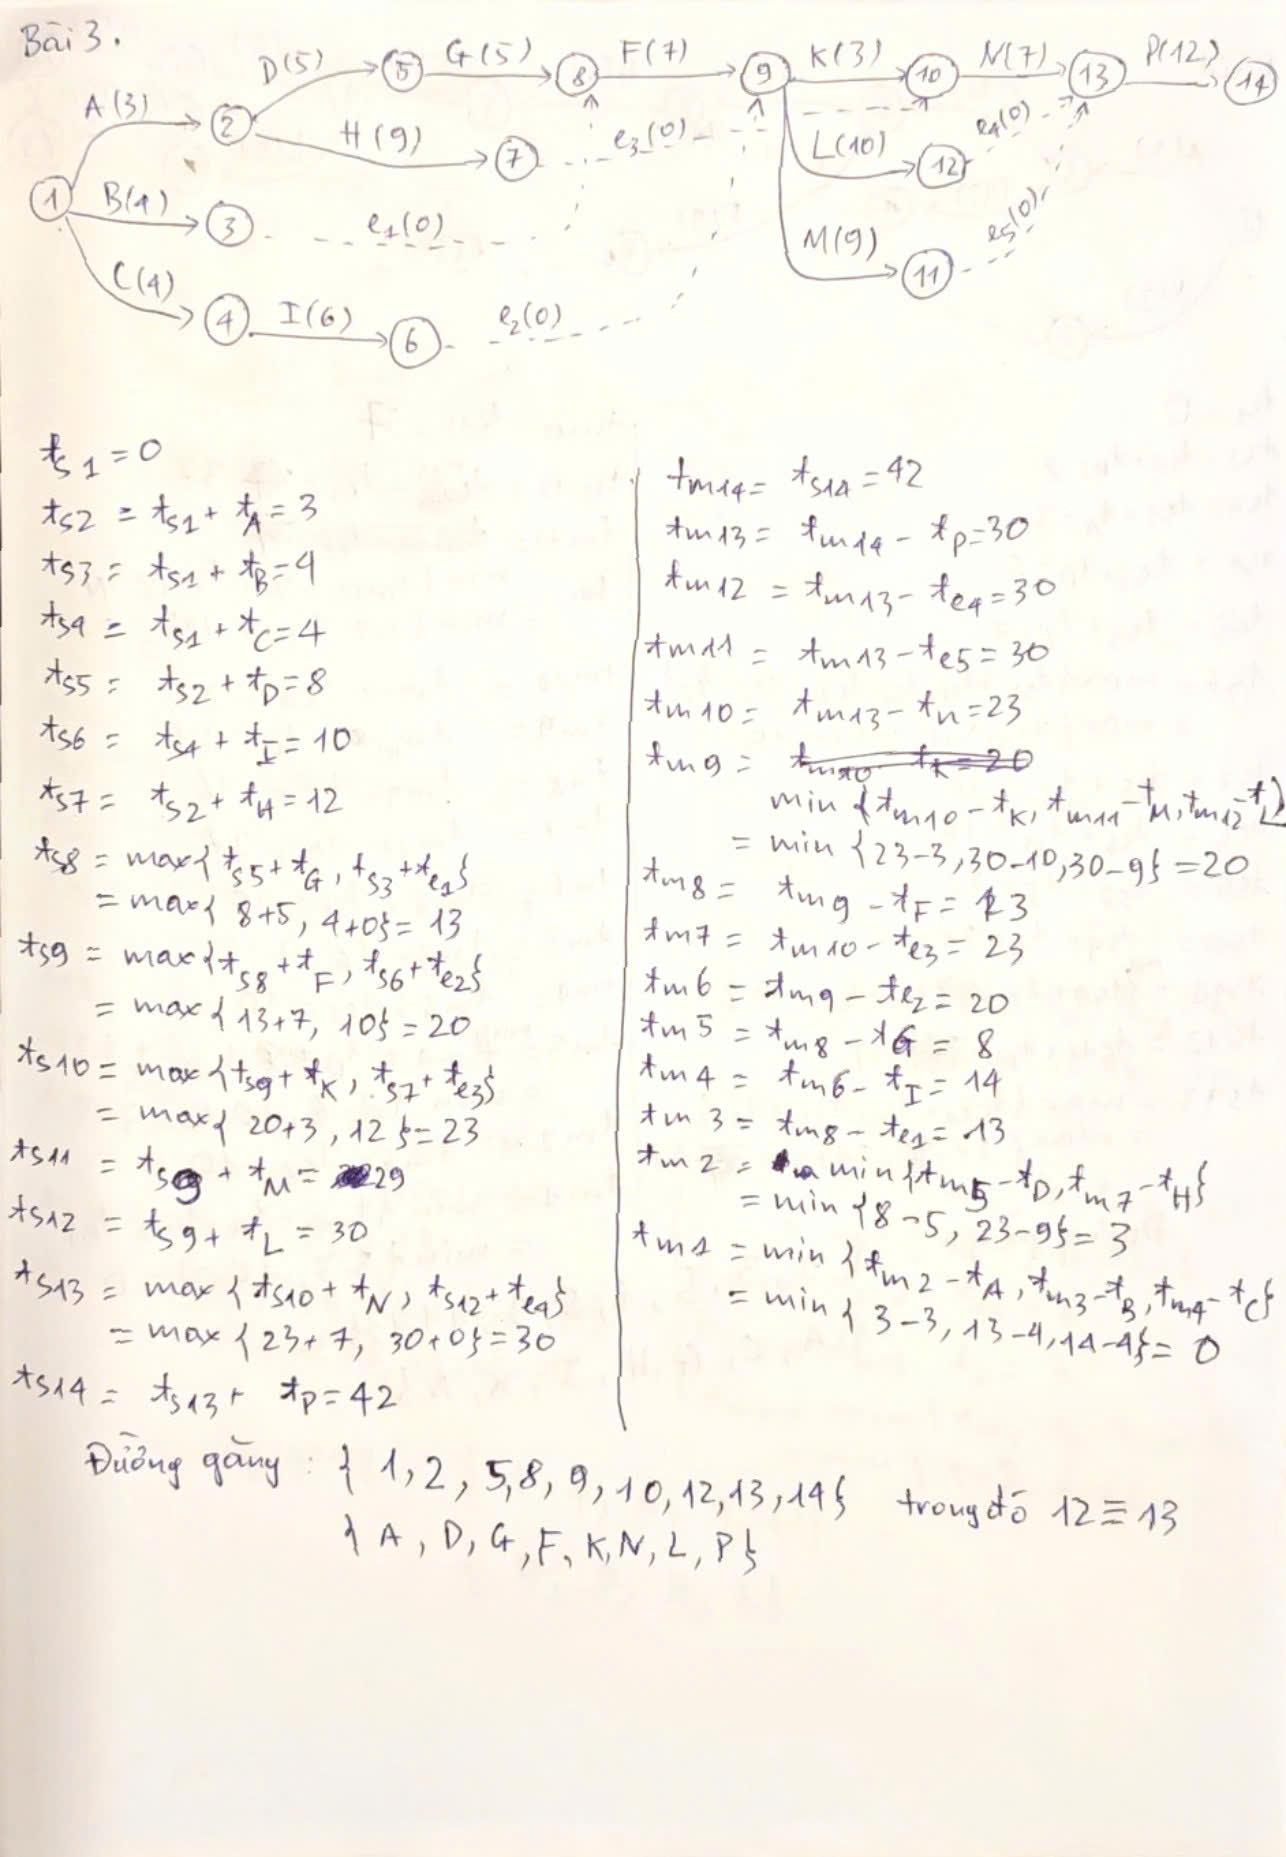 Bài 3.
A(3)
D(5)
G(5)
F(7)
K(3)
N(7)
P(12)
H(9)
B(4)
C(4)
I(6)
e1(0)
e2(0)
e3(0)
e4(0)
e5(0)
L(10)
M(9)
1
2
3
4
5
6
7
8
9
10
11
12
13
14
ts1 = 0
ts2 = ts1 + tA = 3
ts3 = ts1 + tB = 4
ts4 = ts1 + tC = 4
ts5 = ts2 + tD = 8
ts6 = ts4 + tI = 10
ts7 = ts2 + tH = 12
ts8 = max{ts5 + tG, ts3 + te1}
= max{8+5, 4+0} = 13
ts9 = max{ts8 + tF, ts6 + te2}
= max{13+7, 10} = 20
ts10 = max{ts9 + tK, ts7 + te3}
= max{20+3, 12} = 23
ts11 = ts9 + tM = 29
ts12 = ts9 + tL = 30
ts13 = max{ts10 + tN, ts12 + te4}
= max{23+7, 30+0} = 30
ts14 = ts13 + tP = 42
tm14 = ts14 = 42
tm13 = tm14 - tP = 30
tm12 = tm13 - te4 = 30
tm11 = tm13 - te5 = 30
tm10 = tm13 - tn = 23
tm9 = tm10 tK = 20
min{tm10 - tK, tm11 - tM, tm12 - tL}
= min{23-3, 30-10, 30-9} = 20
tm8 = tm9 - tF = 13
tm7 = tm10 - te3 = 23
tm6 = tm9 - te2 = 20
tm5 = tm8 - tG = 8
tm4 = tm6 - tI = 14
tm3 = tm8 - te1 = 13
tm2 = min{tm5 - tD, tm7 - tH}
= min{8-5, 23-9} = 3
tm1 = min{tm2 - tA, tm3 - tB, tm4 - tC}
= min{3-3, 13-4, 14-4} = 0
Đường găng : { 1, 2, 5, 8, 9, 10, 12, 13, 14} trong đó 12 ≡ 13
{ A, D, G, F, K, N, L, P}